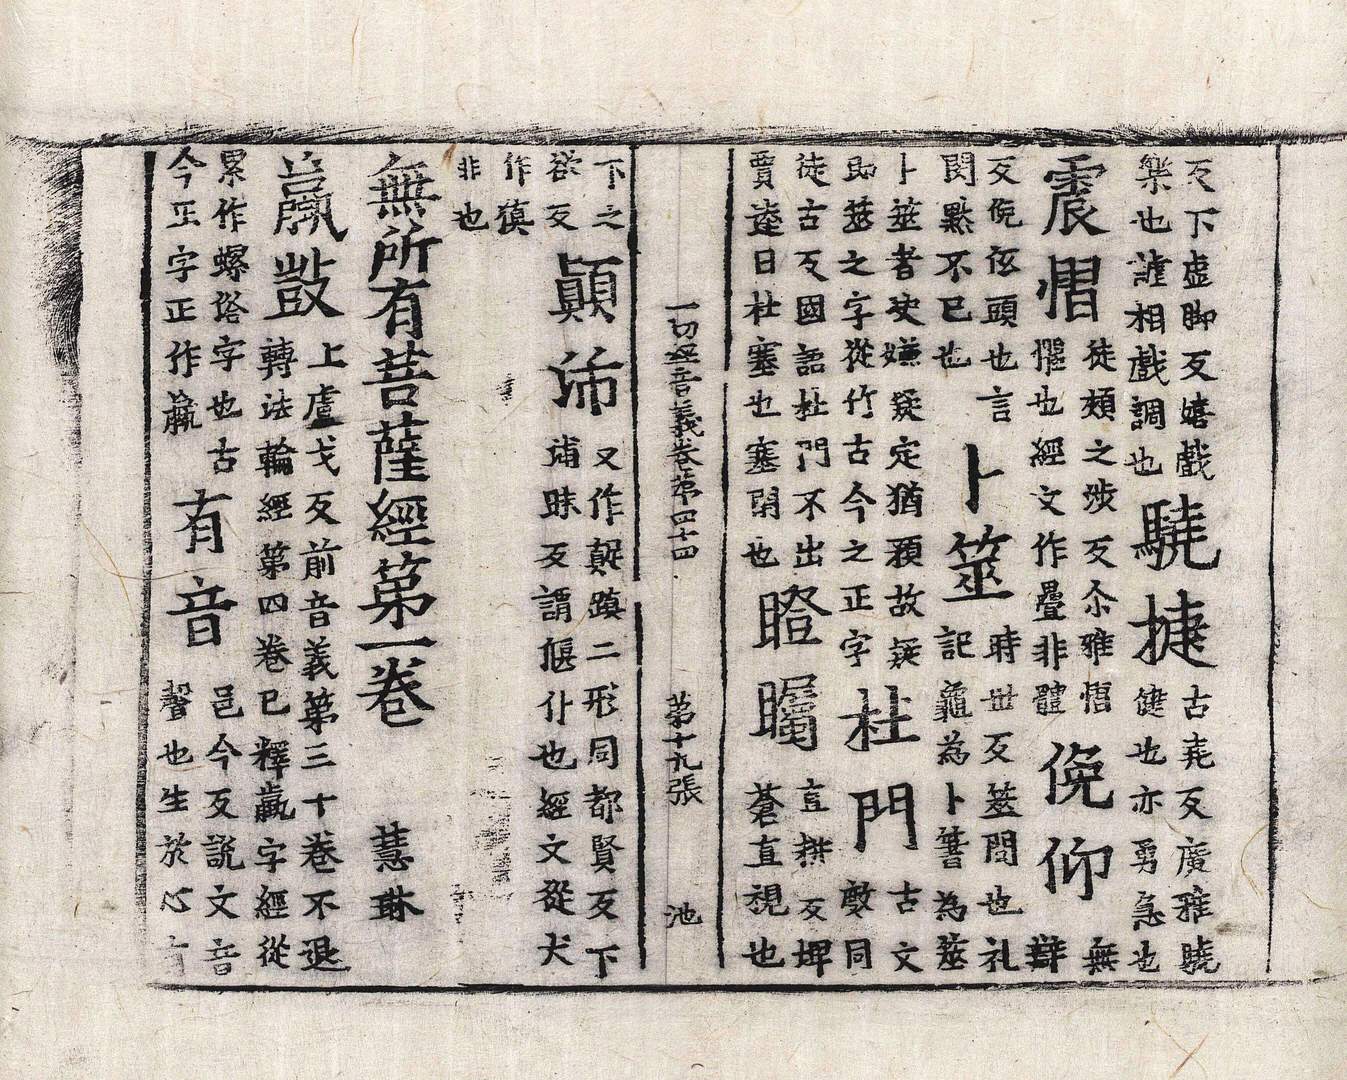 反下虛脚反嬉戲
樂也謔相戲調也
驍捷
古堯反廣雅驍
健也亦勇急也
震慴
徒頰之涉反尒雅慴
懼也經文作疊非體
俛仰
無
辯
反俛伭頭也言
閔黙不已也
卜筮
時世反筮問也礼
記龜為卜蓍為筮
卜筮者决嫌疑定猶預故疑
即筮之字從竹古今之正字
杜門
古文
同
徒古反國語杜門不出
賈逵曰杜塞也塞閉也
瞪矚
直拱反埤
蒼直視也
一切經音義卷第四十四 第十九張 池
下之
欲反
顛沛
又作蹎二形同都賢反下
蒲昧反謂偃仆也經文從犬
作
非也
無所有菩薩經第一卷 慧琳
鼓
上盧戈反前音義第三十卷不退
轉法輪經第四卷已釋蠃字經從
累作螺俗字也古
今正字正作蠃
有音
邑今反說文音
聲也生於心